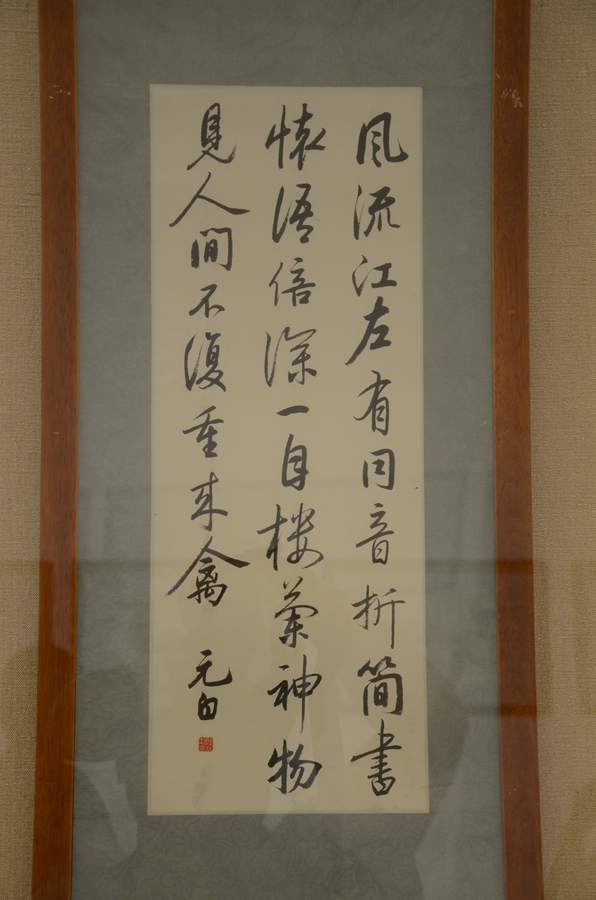 風流江左有同音折简書
懐语倍深一自楼蘭神物
見人間不復重来禽
元白